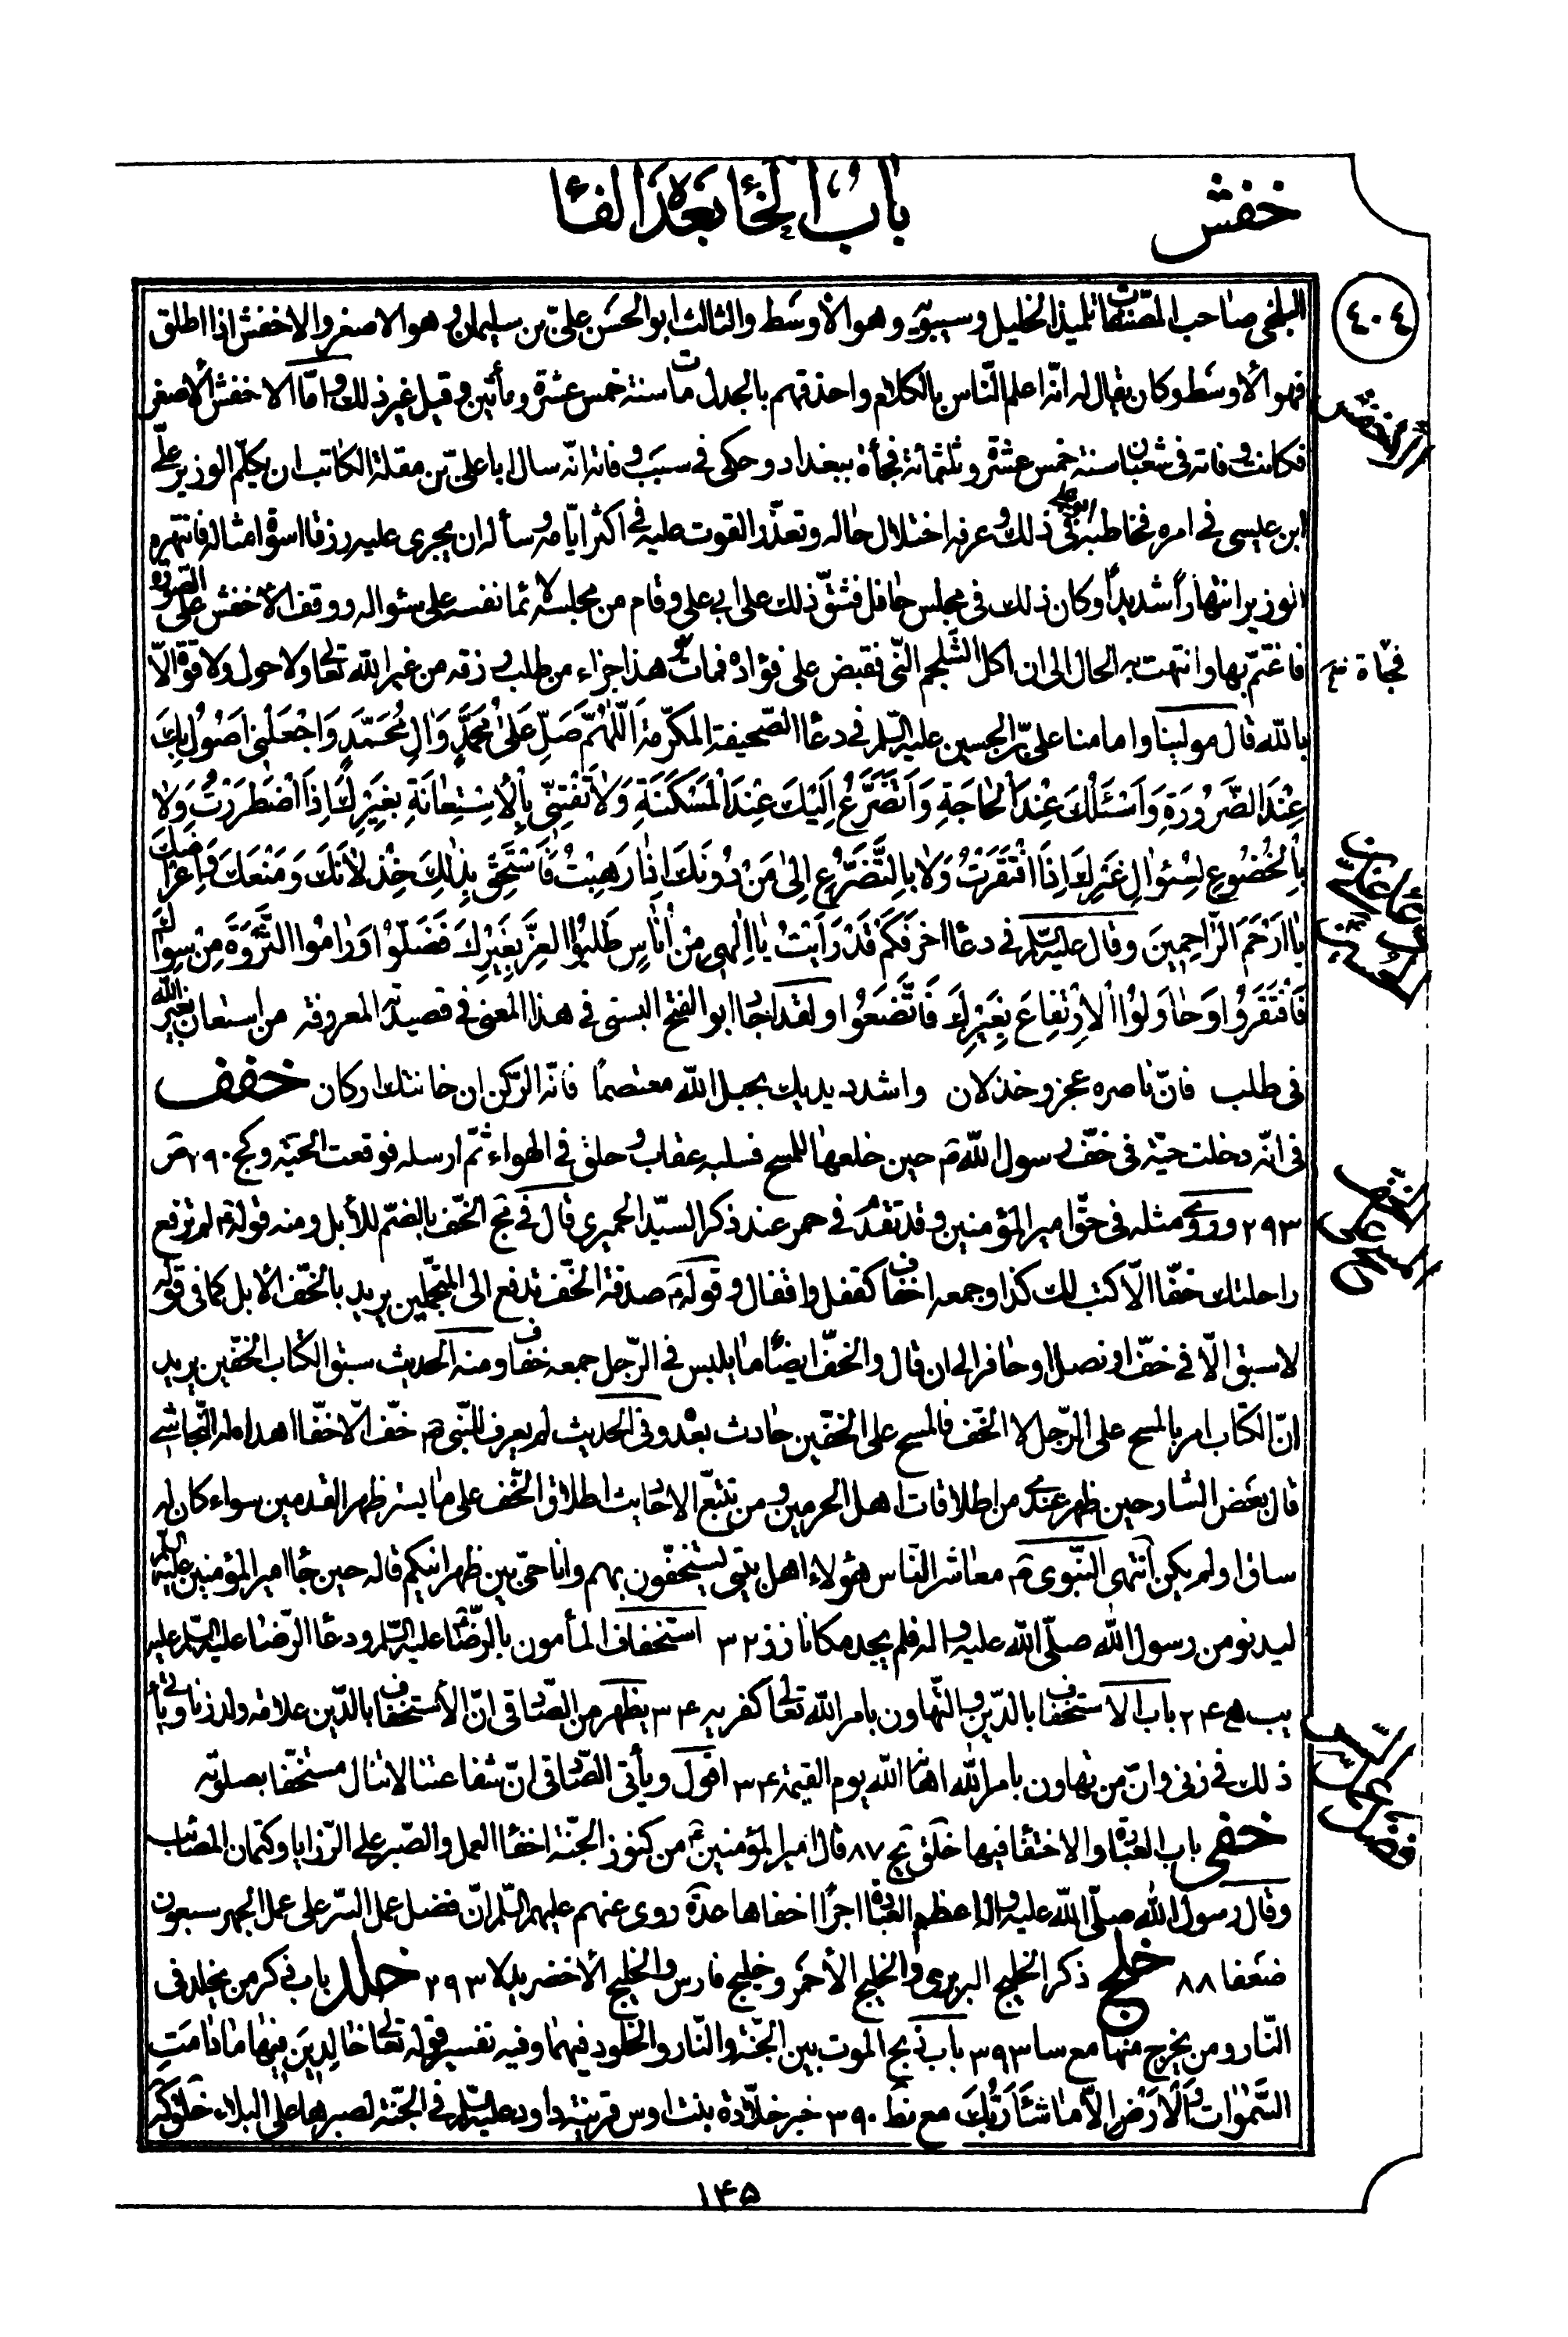 خفش
باب الخاء بعده الفاء
٤٠٤
البلخي صاحب المصنّفات تلميذ الخليل وسيبويه وهو الأوسط والثالث ابو الحسن عليّ بن سليمان وهو الاصغر والاخفش اذا اطلق
فهو الأوسط وكان يقال له انّه اعلم النّاس بالكلام واحذقهم بالجدل مات سنة خمس عشرة ومأتين وقيل غير ذلك وامّا الاخفش الاصغر
الاخفش
فكانت وفاته في شعبان سنة خمس عشرة وثلثمائة فجأة ببغداد وحكى في سبب وفاته انّه سال ابا عليّ بن مقلة الكاتب ان يكلّم الوزير علىّ
ابن عيسى في امره فخاطبه ابو على في ذلك وعرفه اختلال حاله وتعذّر القوت عليه في اكثر ايّامه وسأله ان يجرى عليه رزقا اسوة امثاله فانتهره
الوزير انتهاراً شديداً وكان ذلك في مجلس حافل فشقّ ذلك على ابي على وقام من مجلسه لائما نفسه على سئواله ووقف الأخفش على الصورة
فاغتمّ بها وانتهت به الحال الى ان اكل الشّلجم النّي فقبض على فؤاده فمات هذا جزاء من طلب رزقه من غير الله تعالى ولا حول ولا قوّة الّا
فجأة
بالله قال مولينا وامامنا على بن الحسين عليه السّلم في دعاء الصّحيفة المكرّمة اَللّهُمَّ صَلِّ عَلىٰ مُحَمَّدٍ وَاٰلِ مُحَمَّدٍ وَاجْعَلْنى اَصُولُ بِكَ
عِنْدَ الضَّرُورَةِ وَاَسْئَلُكَ عِنْدَ الْحاجَةِ وَاَتَضَرَّعُ اِلَيْكَ عِنْدَ الْمَسْكَنَةِ وَلا تَفْتِنّى بِالْاِسْتِعانَةِ بِغَيْرِكَ اِذَا اضْطُرِرْتُ وَلا
بِالْخُضُوعِ لِسُئوالِ غَيْرِكَ اِذَا افْتَقَرْتُ وَلا بِالتَّضَرُّعِ اِلىٰ مَنْ دُونَكَ اِذا رَهِبْتُ فَاَسْتَحِقَّ بِذٰلِكَ خِذْلانَكَ وَمَنْعَكَ وَاِعْراضَكَ
يا اَرْحَمَ الرّاحِمِينَ وقال عليه السّلم في دعاء اخر فَكَمْ قَدْ رَاَيْتُ يا اِلٰهى مِنْ اُناسٍ طَلَبُوا الْعِزَّ بِغَيْرِكَ فَضَلّوُا وَرامُوا الثَّرْوَةَ مِنْ سِواكَ
فَافْتَقَرُوا وَحاوَلُوا الْاِرْتِفاعَ بِغَيْرِكَ فَاتَّضَعُوا ولقد اجاد ابو الفتح البستى في هذا المعنى في قصيدته المعروفة من استعان بغير الله
في طلب فانّ ناصره عجز وخذلان واشدد يديك بحبل الله معتصما فانّه الرّكن ان خانتك اركان خفف
في انّه دخلت حيّة في خفّ رسول الله ص حين خلعها للمسح فسلبه عقاب وحلق في الهواء ثمّ ارسله فوقعت الحيّة وكج ٢٩٠ ص
٢٩٣ وروى مثله في حقّ امير المؤمنين وقد تقدّم في حمر عند ذكر السيّد الحميرى قال في مج الخّف بالضمّ للأبل ومنه قوله لم ترفع
راحلتك خفّا الّا كتب لك كذا وجمعه اخفاف كقفل واقفال وقوله صدقة الخّف تدفع الى المتجمّلين يريد بالخّف الأبل كما في قوله
لا سبق الّا في خفّ او نصل او حافر الى ان قال والخّف ايضًا ما يلبس في الرّجل جمعه خفاف ومنه الحديث سبق الكتاب الخفّين يريد
انّ الكتاب امر بالمسح على الرّجل لا الخّف فالمسح على الخفّين حادث بعده وفي الحديث لم يعرف للنّبي ص خفّ الّا خفّا اهداه له النّجاشى
قال بعض الشارحين ظهر عندى من اطلاقات اهل الحرمين ومن تتبّع الاحاديث اطلاق الخّف على ما يستر ظهر القدمين سواء كان له
ساق او لم يكن انتهى النّبوى ص معاشر النّاس هؤلاء اهل بيتي يستخفّون بهم وانا حىّ بين ظهرانيكم قاله حين جاء امير المؤمنين عليه السلم
ليدنو من رسول الله صلّى الله عليه واله فلم يجد مكانا زز ٣٢ استخفاف المأمون بالرّضا عليه السّلم ودعاء الرّضا عليه السّلم عليه
يب ٢٤ باب الاستخفاف بالدّين والتّهاون بامر الله تعالى كفر يه ٣٤ يظهر من الصّادق انّ الأستخفاف بالدّين علامة ولد زنا ويأتى
ذلك في زنى وانّ من تهاون بامر الله اهانه الله يوم القيمة ٣٤ اقول ويأتى الصّادقى انّ شفاعتنا لا تنال مستخفّا بصلوته
خفى باب العبادة والاختفاء فيها خلق نج ٨٧ قال امير المؤمنين من كنوز الجنّة اخفاء العمل والصّبر على الرّزايا وكتمان المصائب
وقال رسول الله صلّى الله عليه واله اعظم العبادة اجرًا اخفاها عدة روى عنهم عليهم السّلم انّ فضل عمل السّر على عمل الجهر سبعون
ضعفا ٨٨ خلج ذكر الخليج البربرى والخليج الأحمر وخليج فارس والخليج الأخضر يد لا ٢٩٣ خلد باب ذكر من يخلد في
النّار ومن يخرج منها مع سا ٣٩٣ باب ذبح الموت بين الجّنة والنّار والخلود فيهما وفيه تفسير قوله تعالى خالِدِينَ فِيها ما دامَتِ
السَّمٰواتُ وَالْاَرْضُ اِلّا ما شاءَ رَبُّكَ مع نط ٣٩٠ خبر خلّادة بنت اوس قرينة داود عليه السّلم في الجّنة لصبرها على البلاء خلق كد
١٤٥